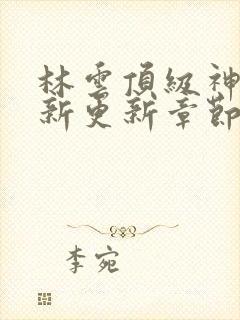 林雲頂級神
新更新章節
李宛